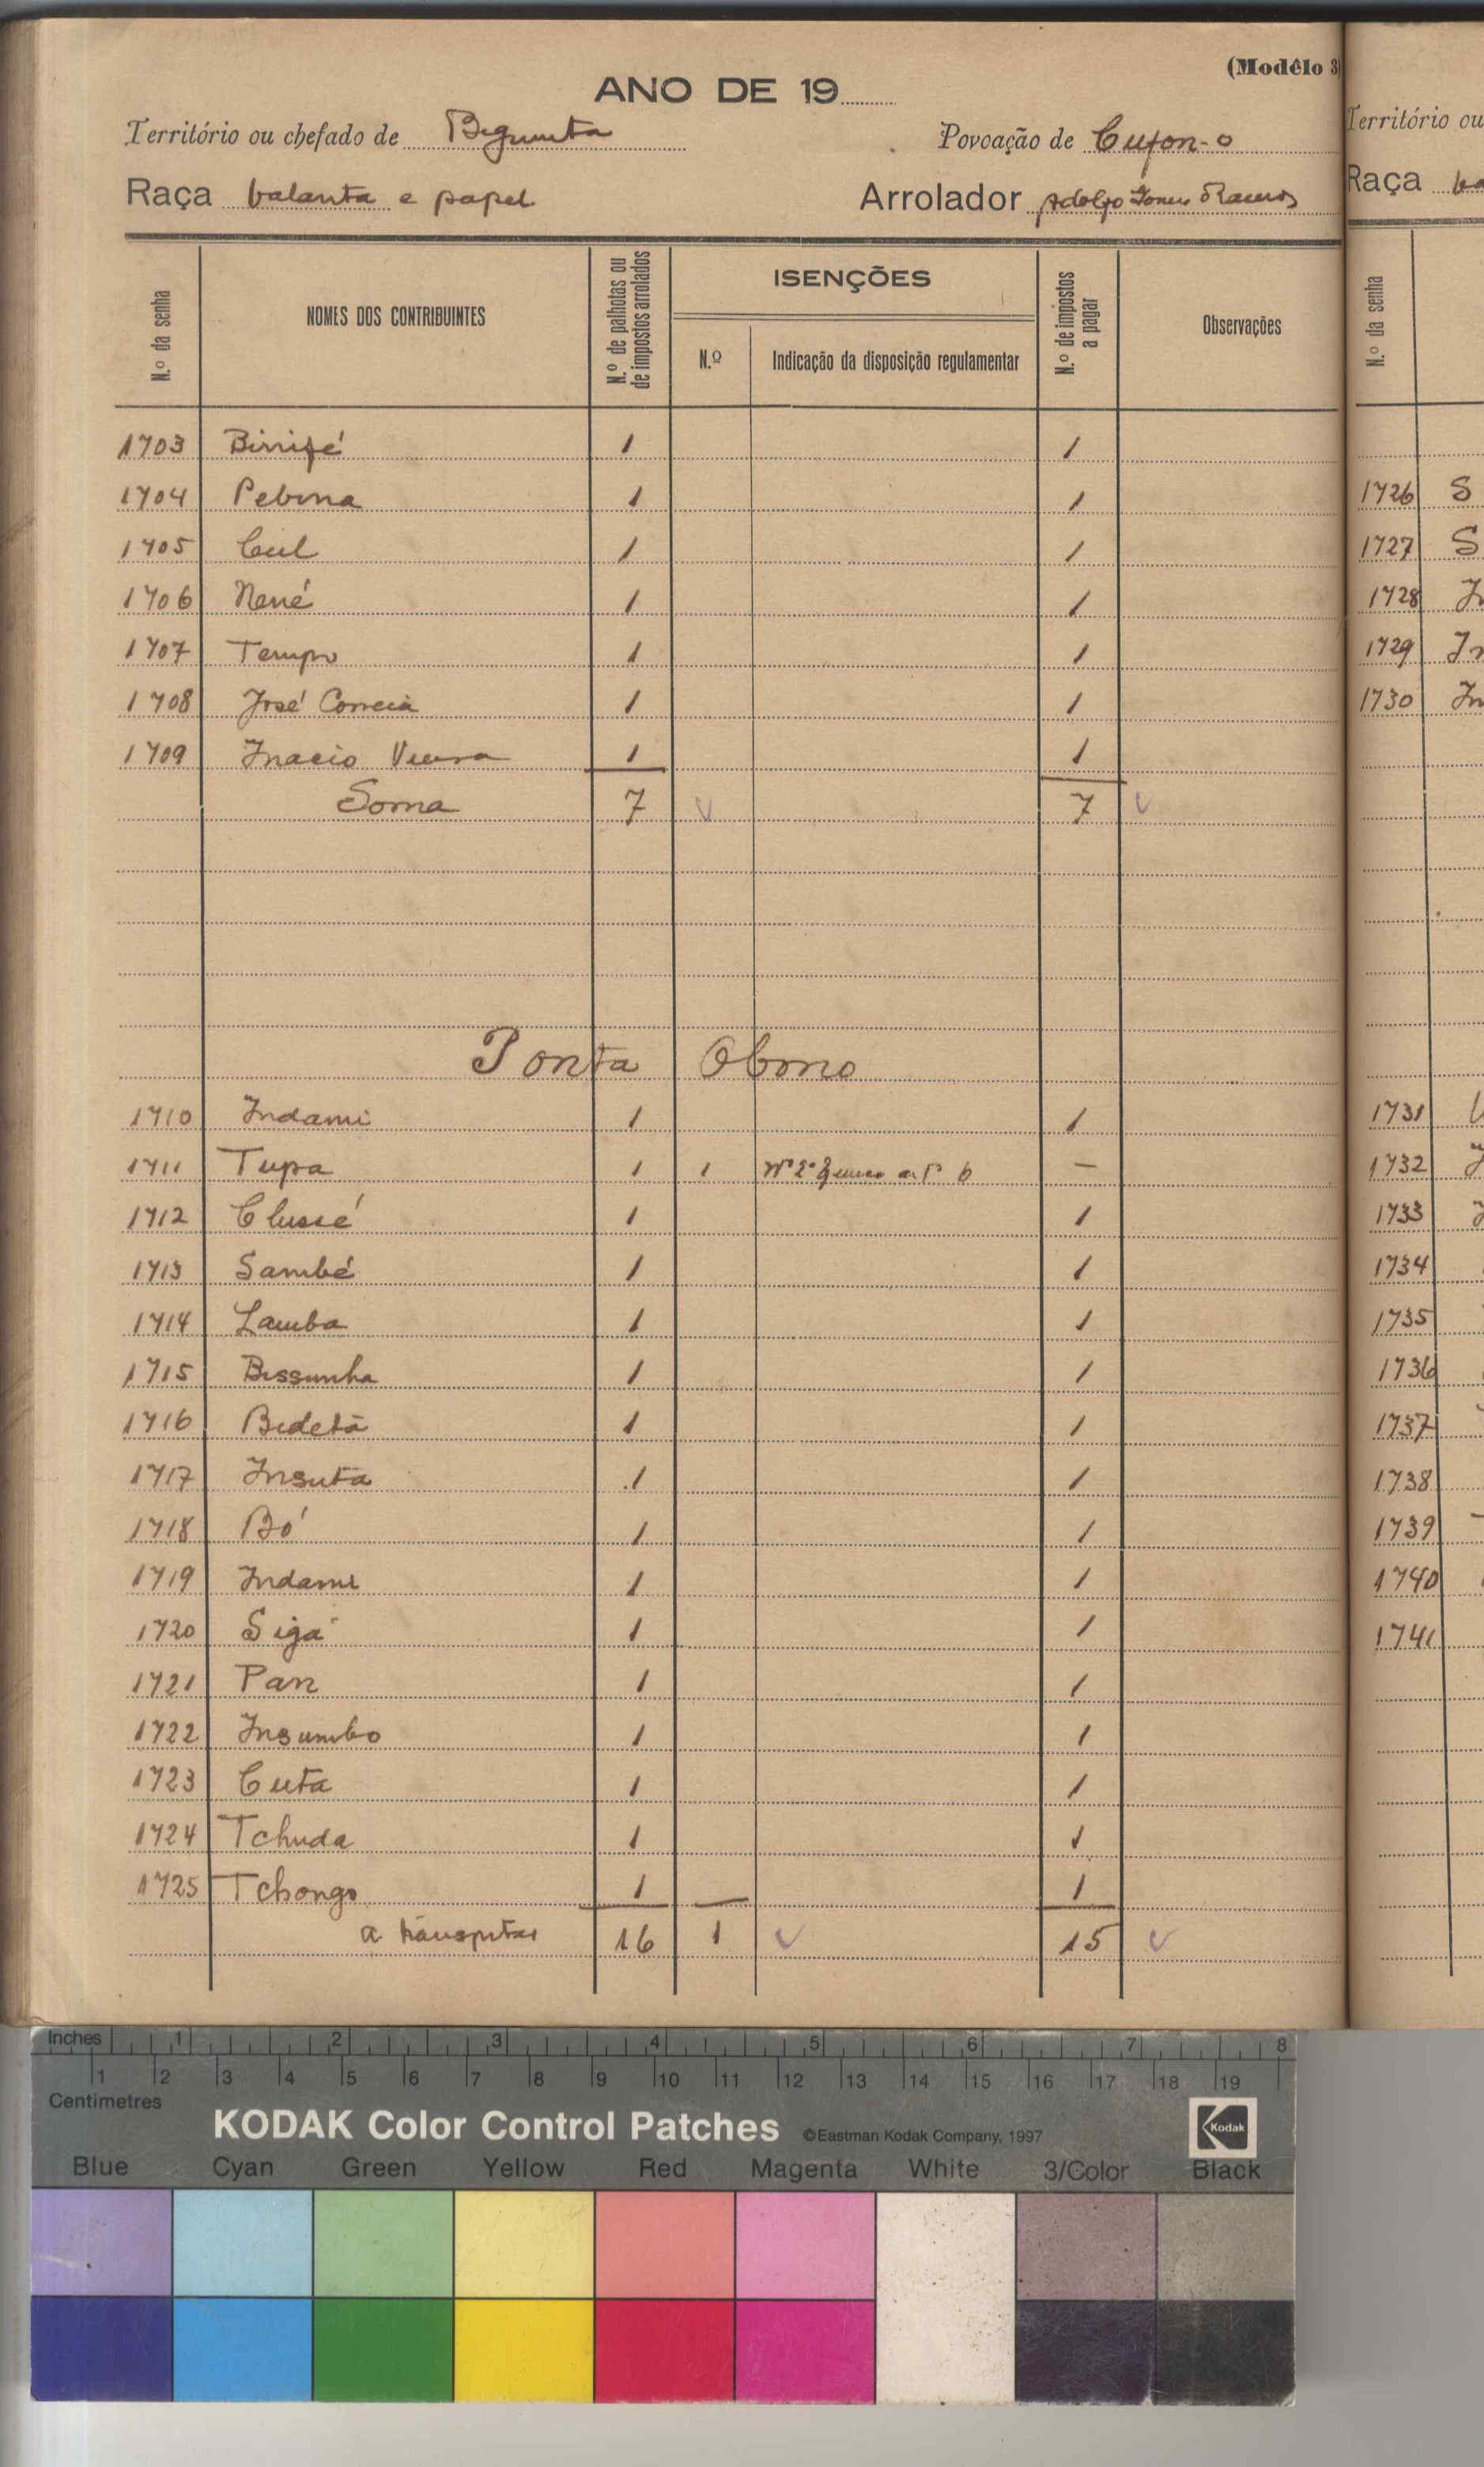 (Modêlo 3
ANO DE 19
Território ou chefado de Bigimita Povoação de Cufon-o
Raça balanta e papel Arrolador Adolfo Gomes Ramos
N.º da senha NOMES DOS CONTRIBUINTES N.º de palhotas ou de impostos arrolados ISENÇÕES N.º de impostos a pagar Observações
N.º Indicação da disposição regulamentar
1703 Binifé 1 1
1704 Pebina 1 1
1705 Cul 1 1
1706 Nené 1 1
1707 Tempo 1 1
1708 José Correia 1 1
1709 Inacio Vieira 1 1
Soma 7 7
Ponta Obono
1710 Indami 1 1
1711 Tupa 1 1 Nº 2º art.º 6 —
1712 Clussé 1 1
1713 Sambé 1 1
1714 Lamba 1 1
1715 Bissunha 1 1
1716 Bidetà 1 1
1717 Insuta 1 1
1718 Bó 1 1
1719 Indami 1 1
1720 Siga 1 1
1721 Pan 1 1
1722 Insumbo 1 1
1723 Cuta 1 1
1724 Tchuda 1 1
1725 Tchongo 1 1
a transportar 16 1 15
Território ou
Raça ba
N.º da senha
1726 S
1727 S
1728
1729 In
1730 In
1731
1732
1733
1734
1735
1736
1737
1738
1739
1740
1741
Inches 1 2 3 4 5 6 7 8
1 2 3 4 5 6 7 8 9 10 11 12 13 14 15 16 17 18 19
Centimetres
KODAK Color Control Patches ©Eastman Kodak Company, 1997 Kodak
Blue Cyan Green Yellow Red Magenta White 3/Color Black